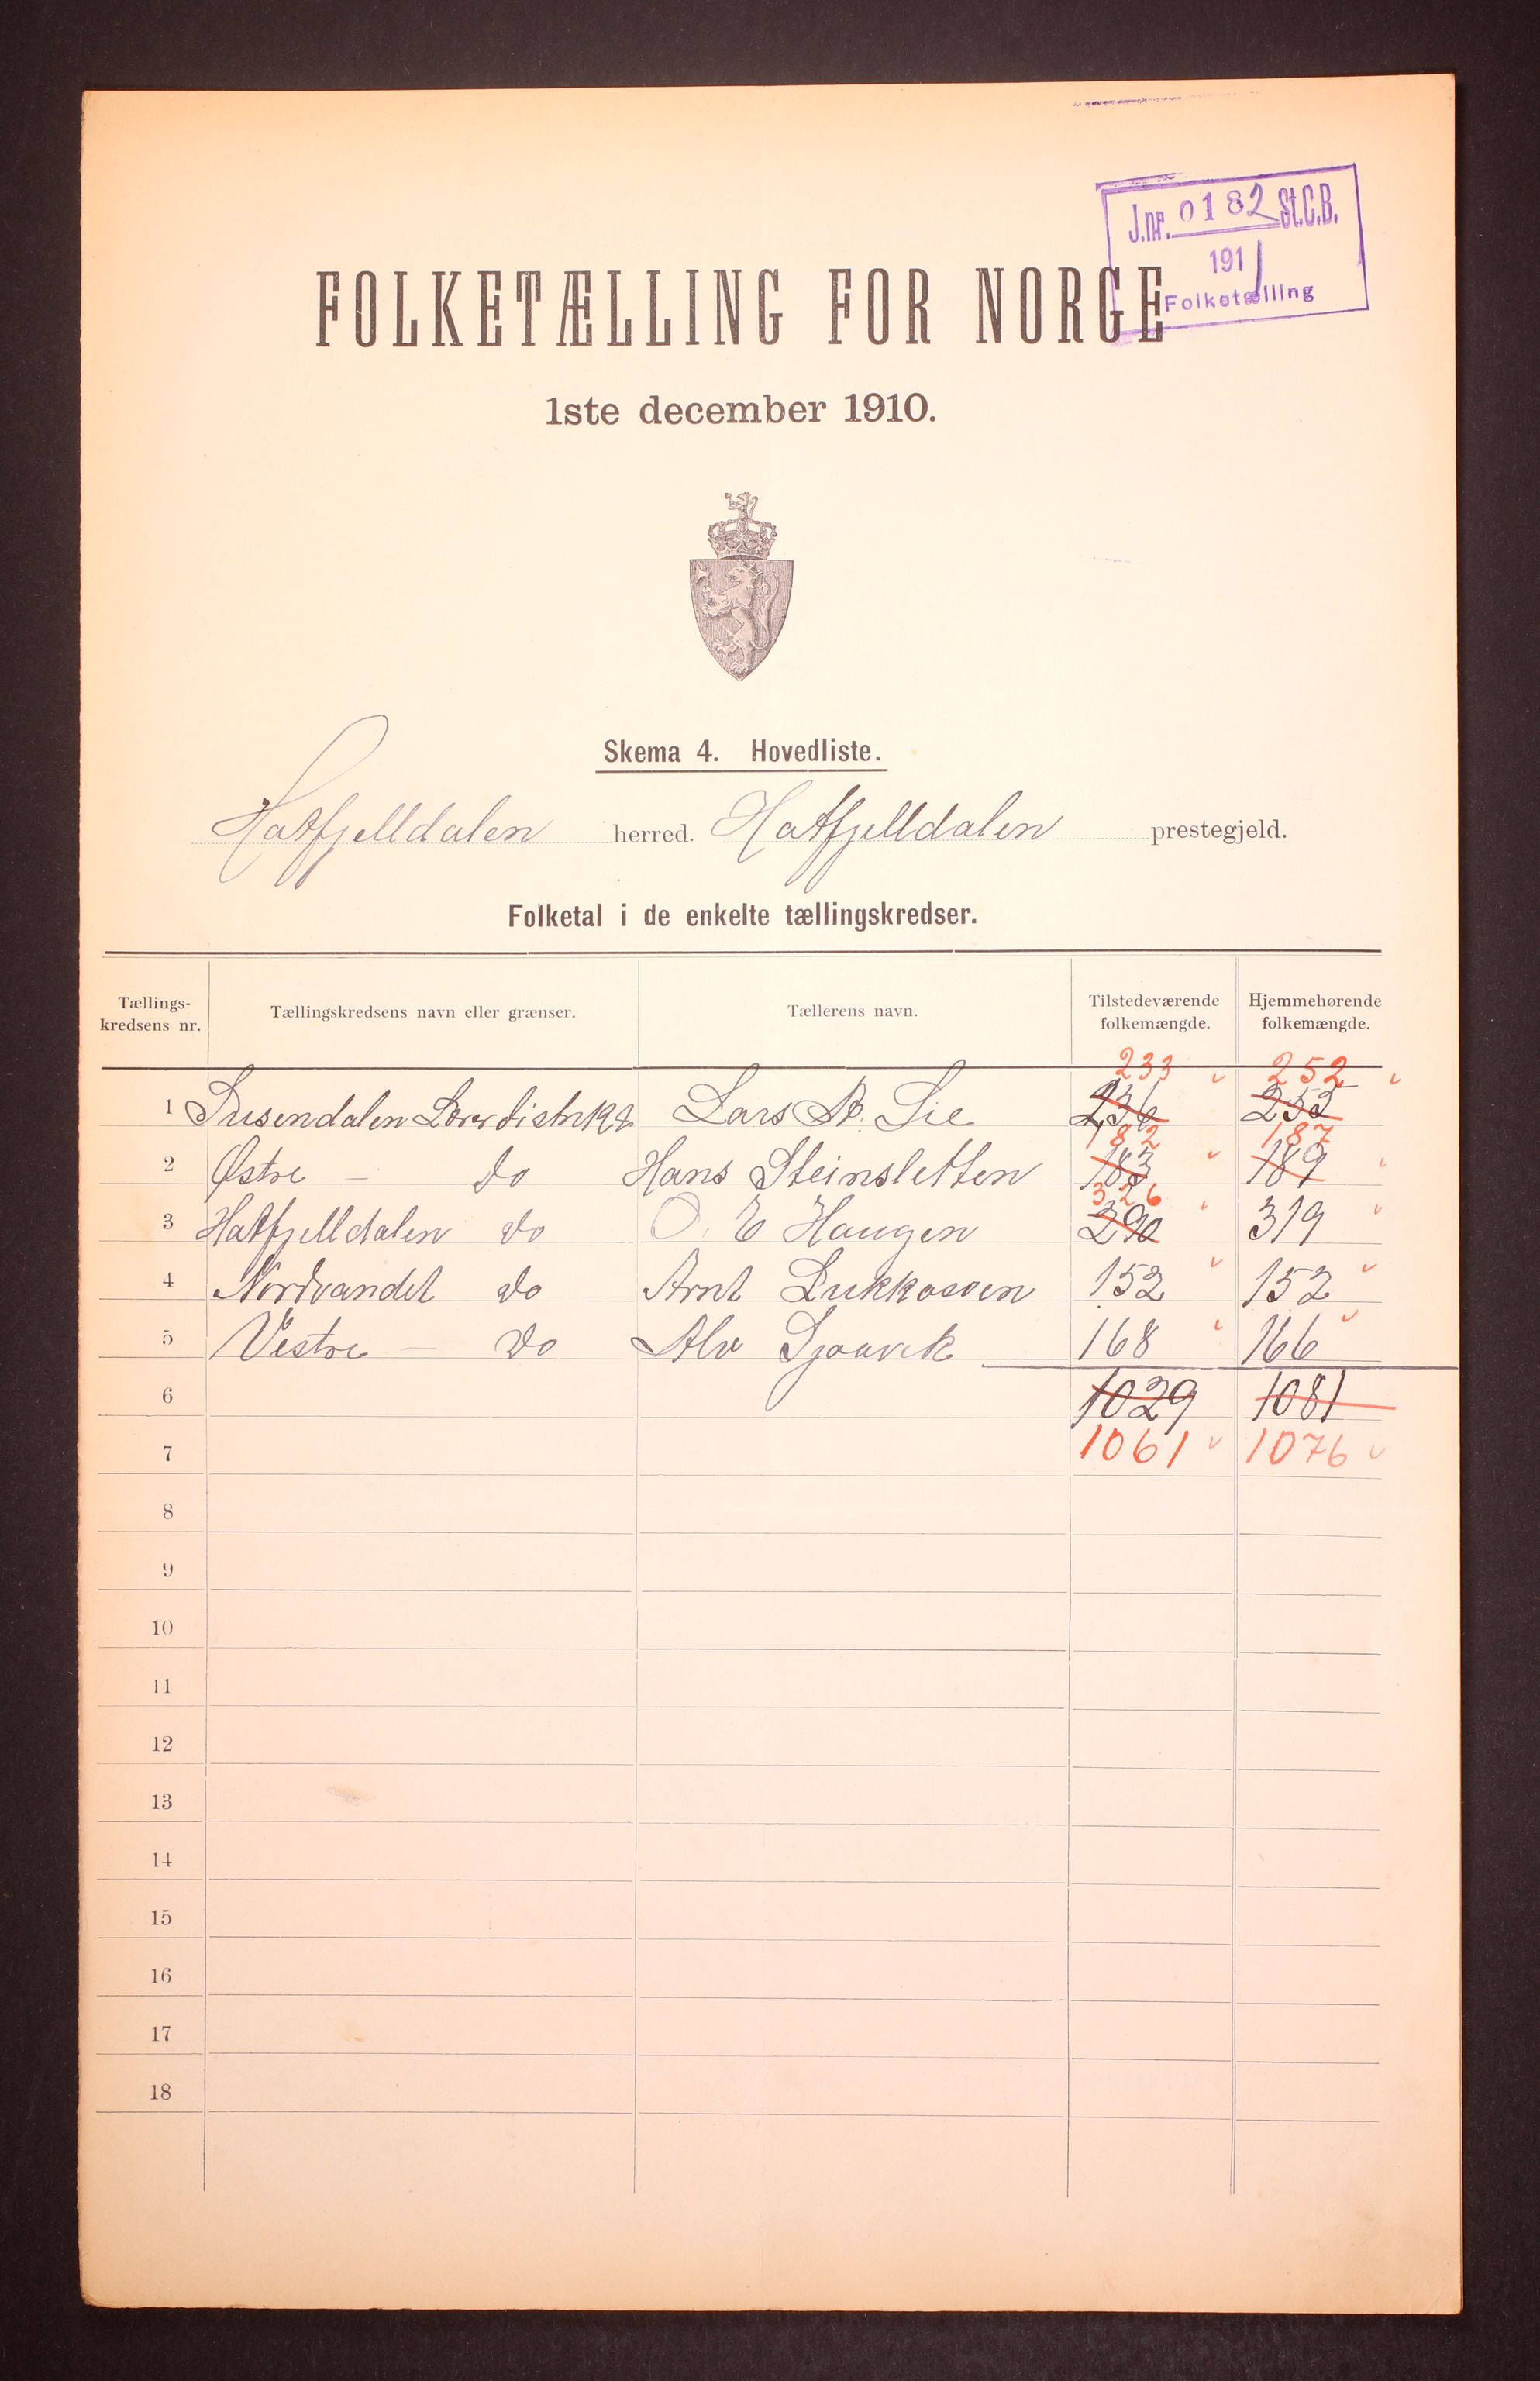 J.nr. 0182 St.C.B.
1911
Folketælling
FOLKETÆLLING FOR NORGE
1ste december 1910.
Skema 4. Hovedliste.
Hatfjelldalen herred. Hatfjelldalen prestegjeld.
Folketal i de enkelte tællingskredser.
Tællings-kredsens nr. Tællingskredsens navn eller grænser. Tællerens navn. Tilstedeværende folkemængde. Hjemmehørende folkemængde.
233 252
1 Susendalen Lars P. Lie 236 253
182 187
2 Østre - do Hans Steinsletten 183 189
326
3 Hatfjelldalen do O. E Haugen 290 319
4 Nordvandet do Arnt Lukkasven 152 152
5 Vestre - do Alv Sjaavik 168 166
6 1029 1081
7 1061 1076
8
9
10
11
12
13
14
15
16
17
18